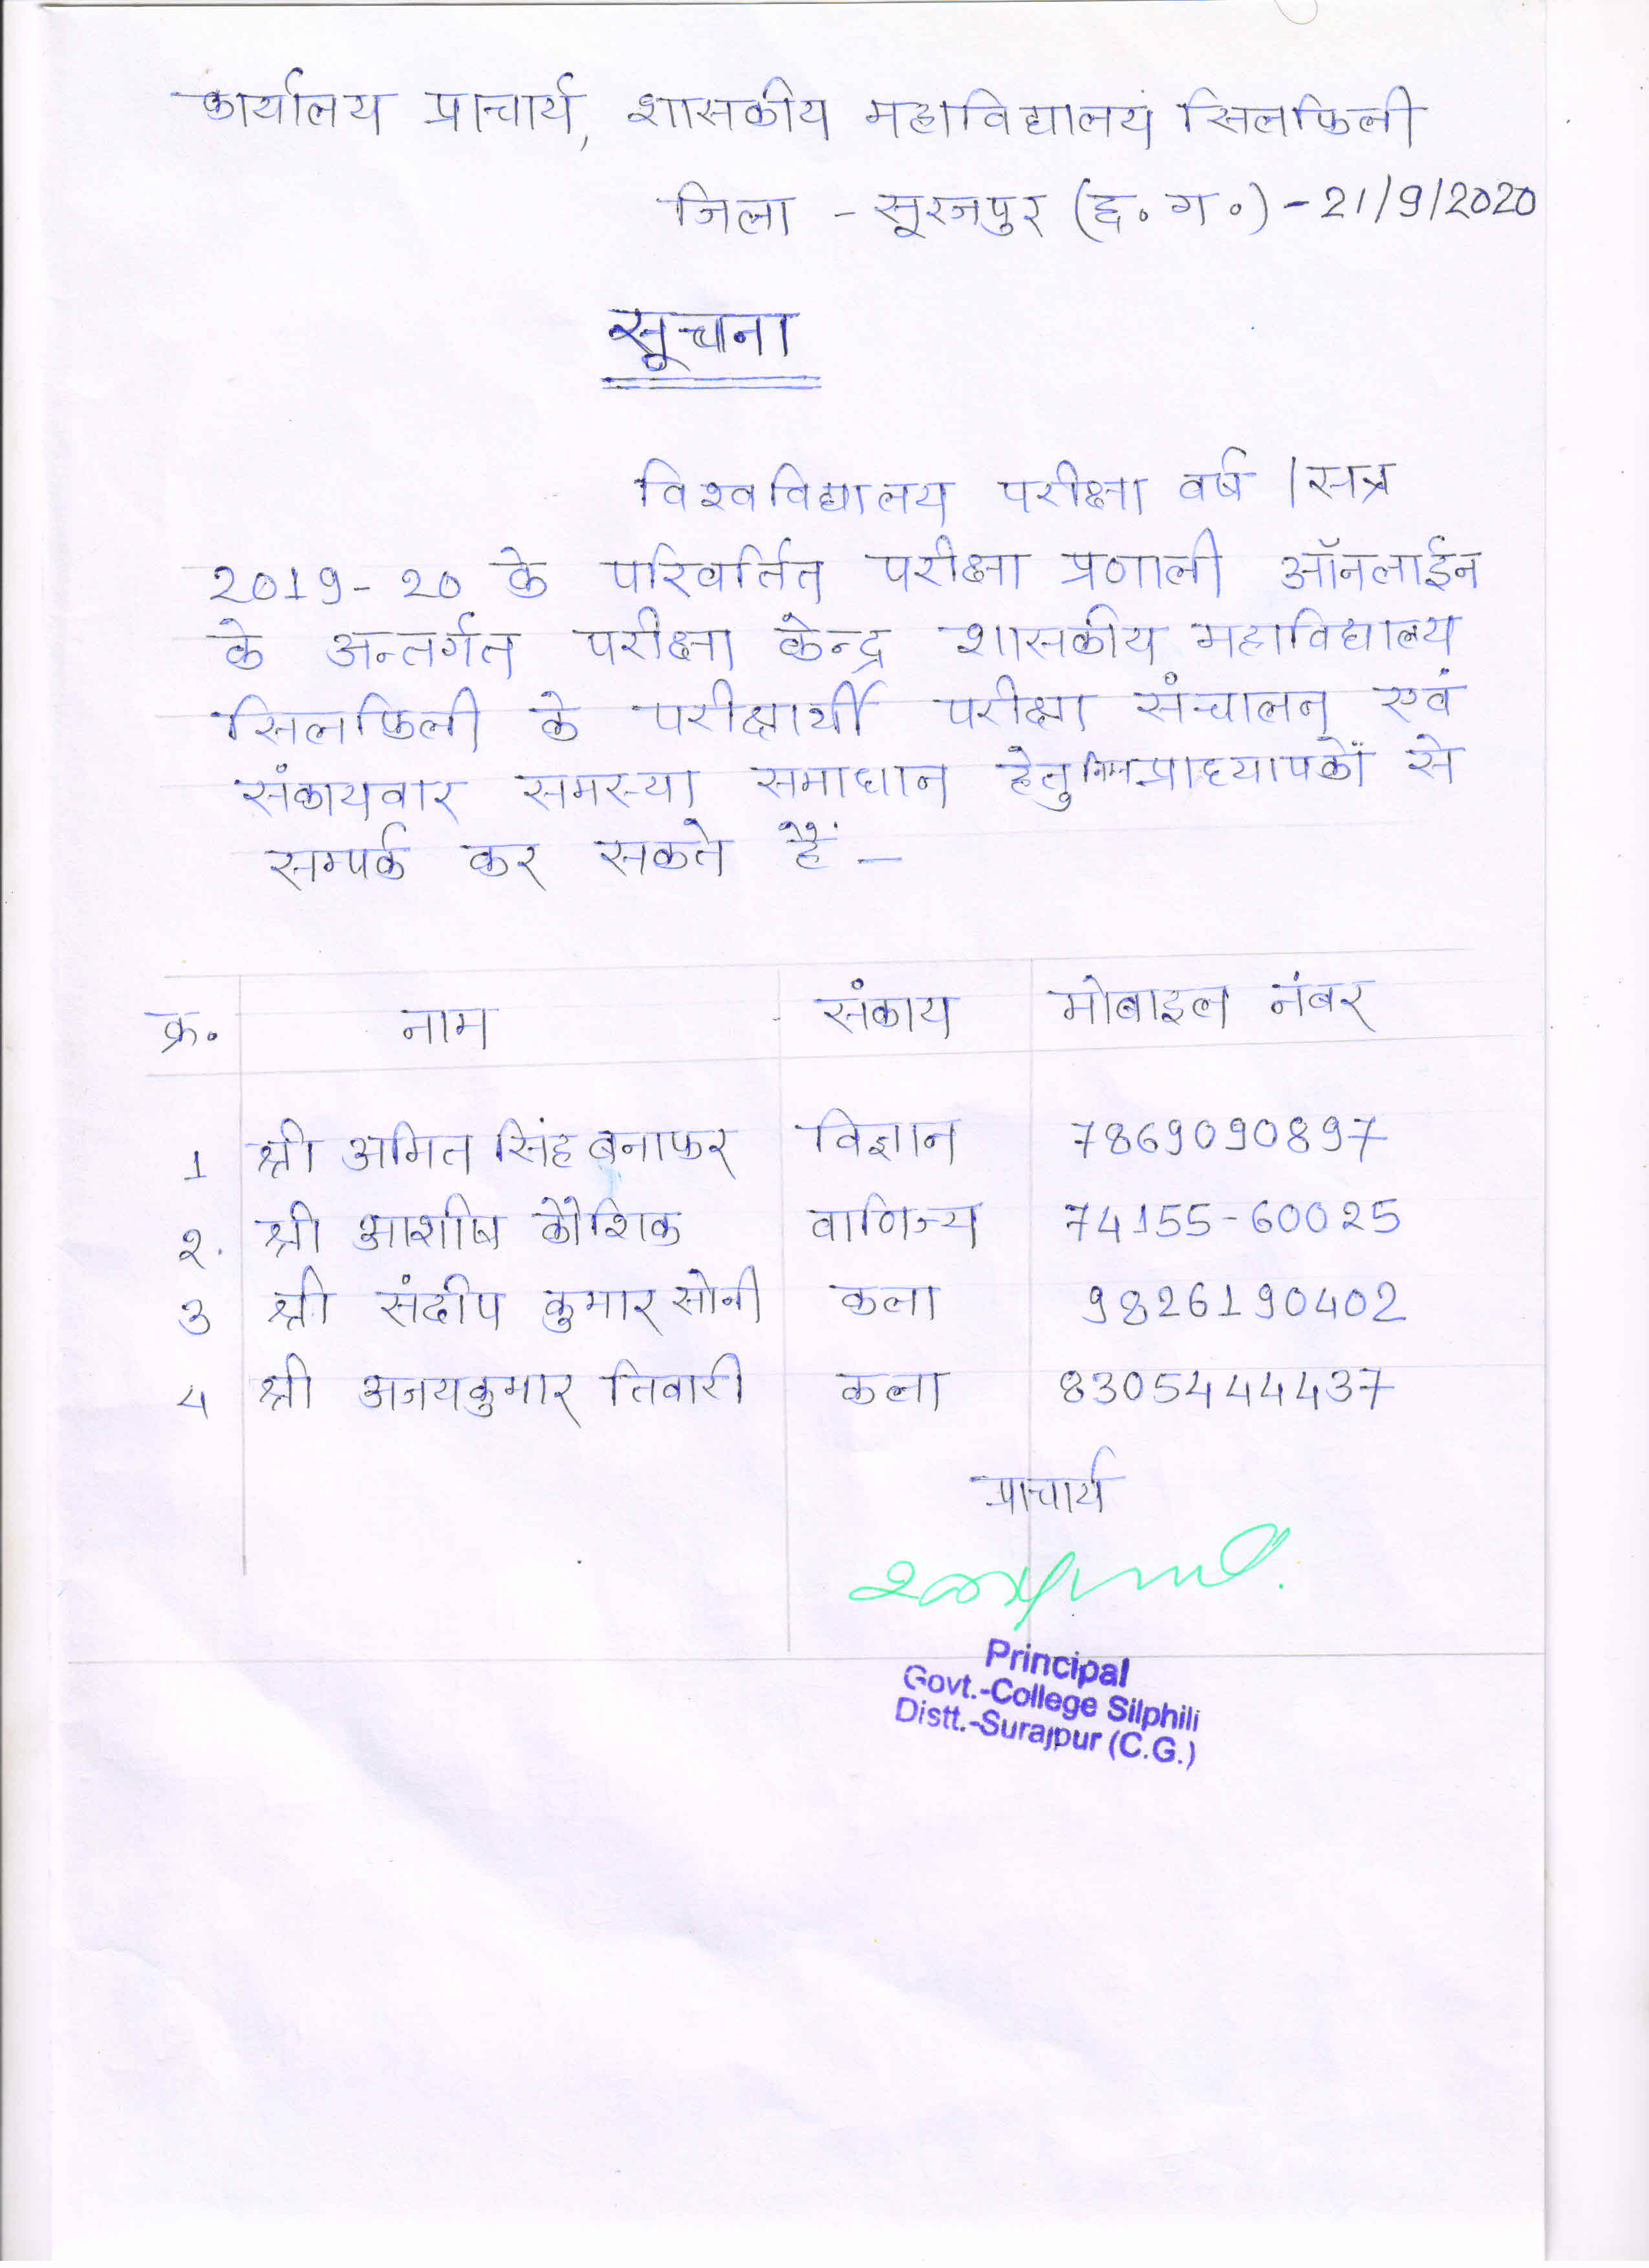 कार्यालय प्राचार्य, शासकीय महाविद्यालय सिलफिली
जिला - सूरजपुर (छ.ग.) - 21/9/2020
सूचना
विश्वविद्यालय परीक्षा वर्ष / सत्र
2019-20 के परिवर्तित परीक्षा प्रणाली ऑनलाईन
के अन्तर्गत परीक्षा केन्द्र शासकीय महाविद्यालय
सिलफिली के परीक्षार्थी परीक्षा संचालन एवं
संकायवार समस्या समाधान हेतु निम्न प्राध्यापकों से
सम्पर्क कर सकते हैं -
क्र. नाम संकाय मोबाइल नंबर
1 श्री अमित सिंह बनाफर विज्ञान 7869090897
2. श्री आशीष कौशिक वाणिज्य 74155-60025
3 श्री संदीप कुमार सोनी कला 9826190402
4 श्री अजयकुमार तिवारी कला 8305444437
प्राचार्य
Principal
Govt.-College Silphili
Distt.-Surajpur (C.G.)